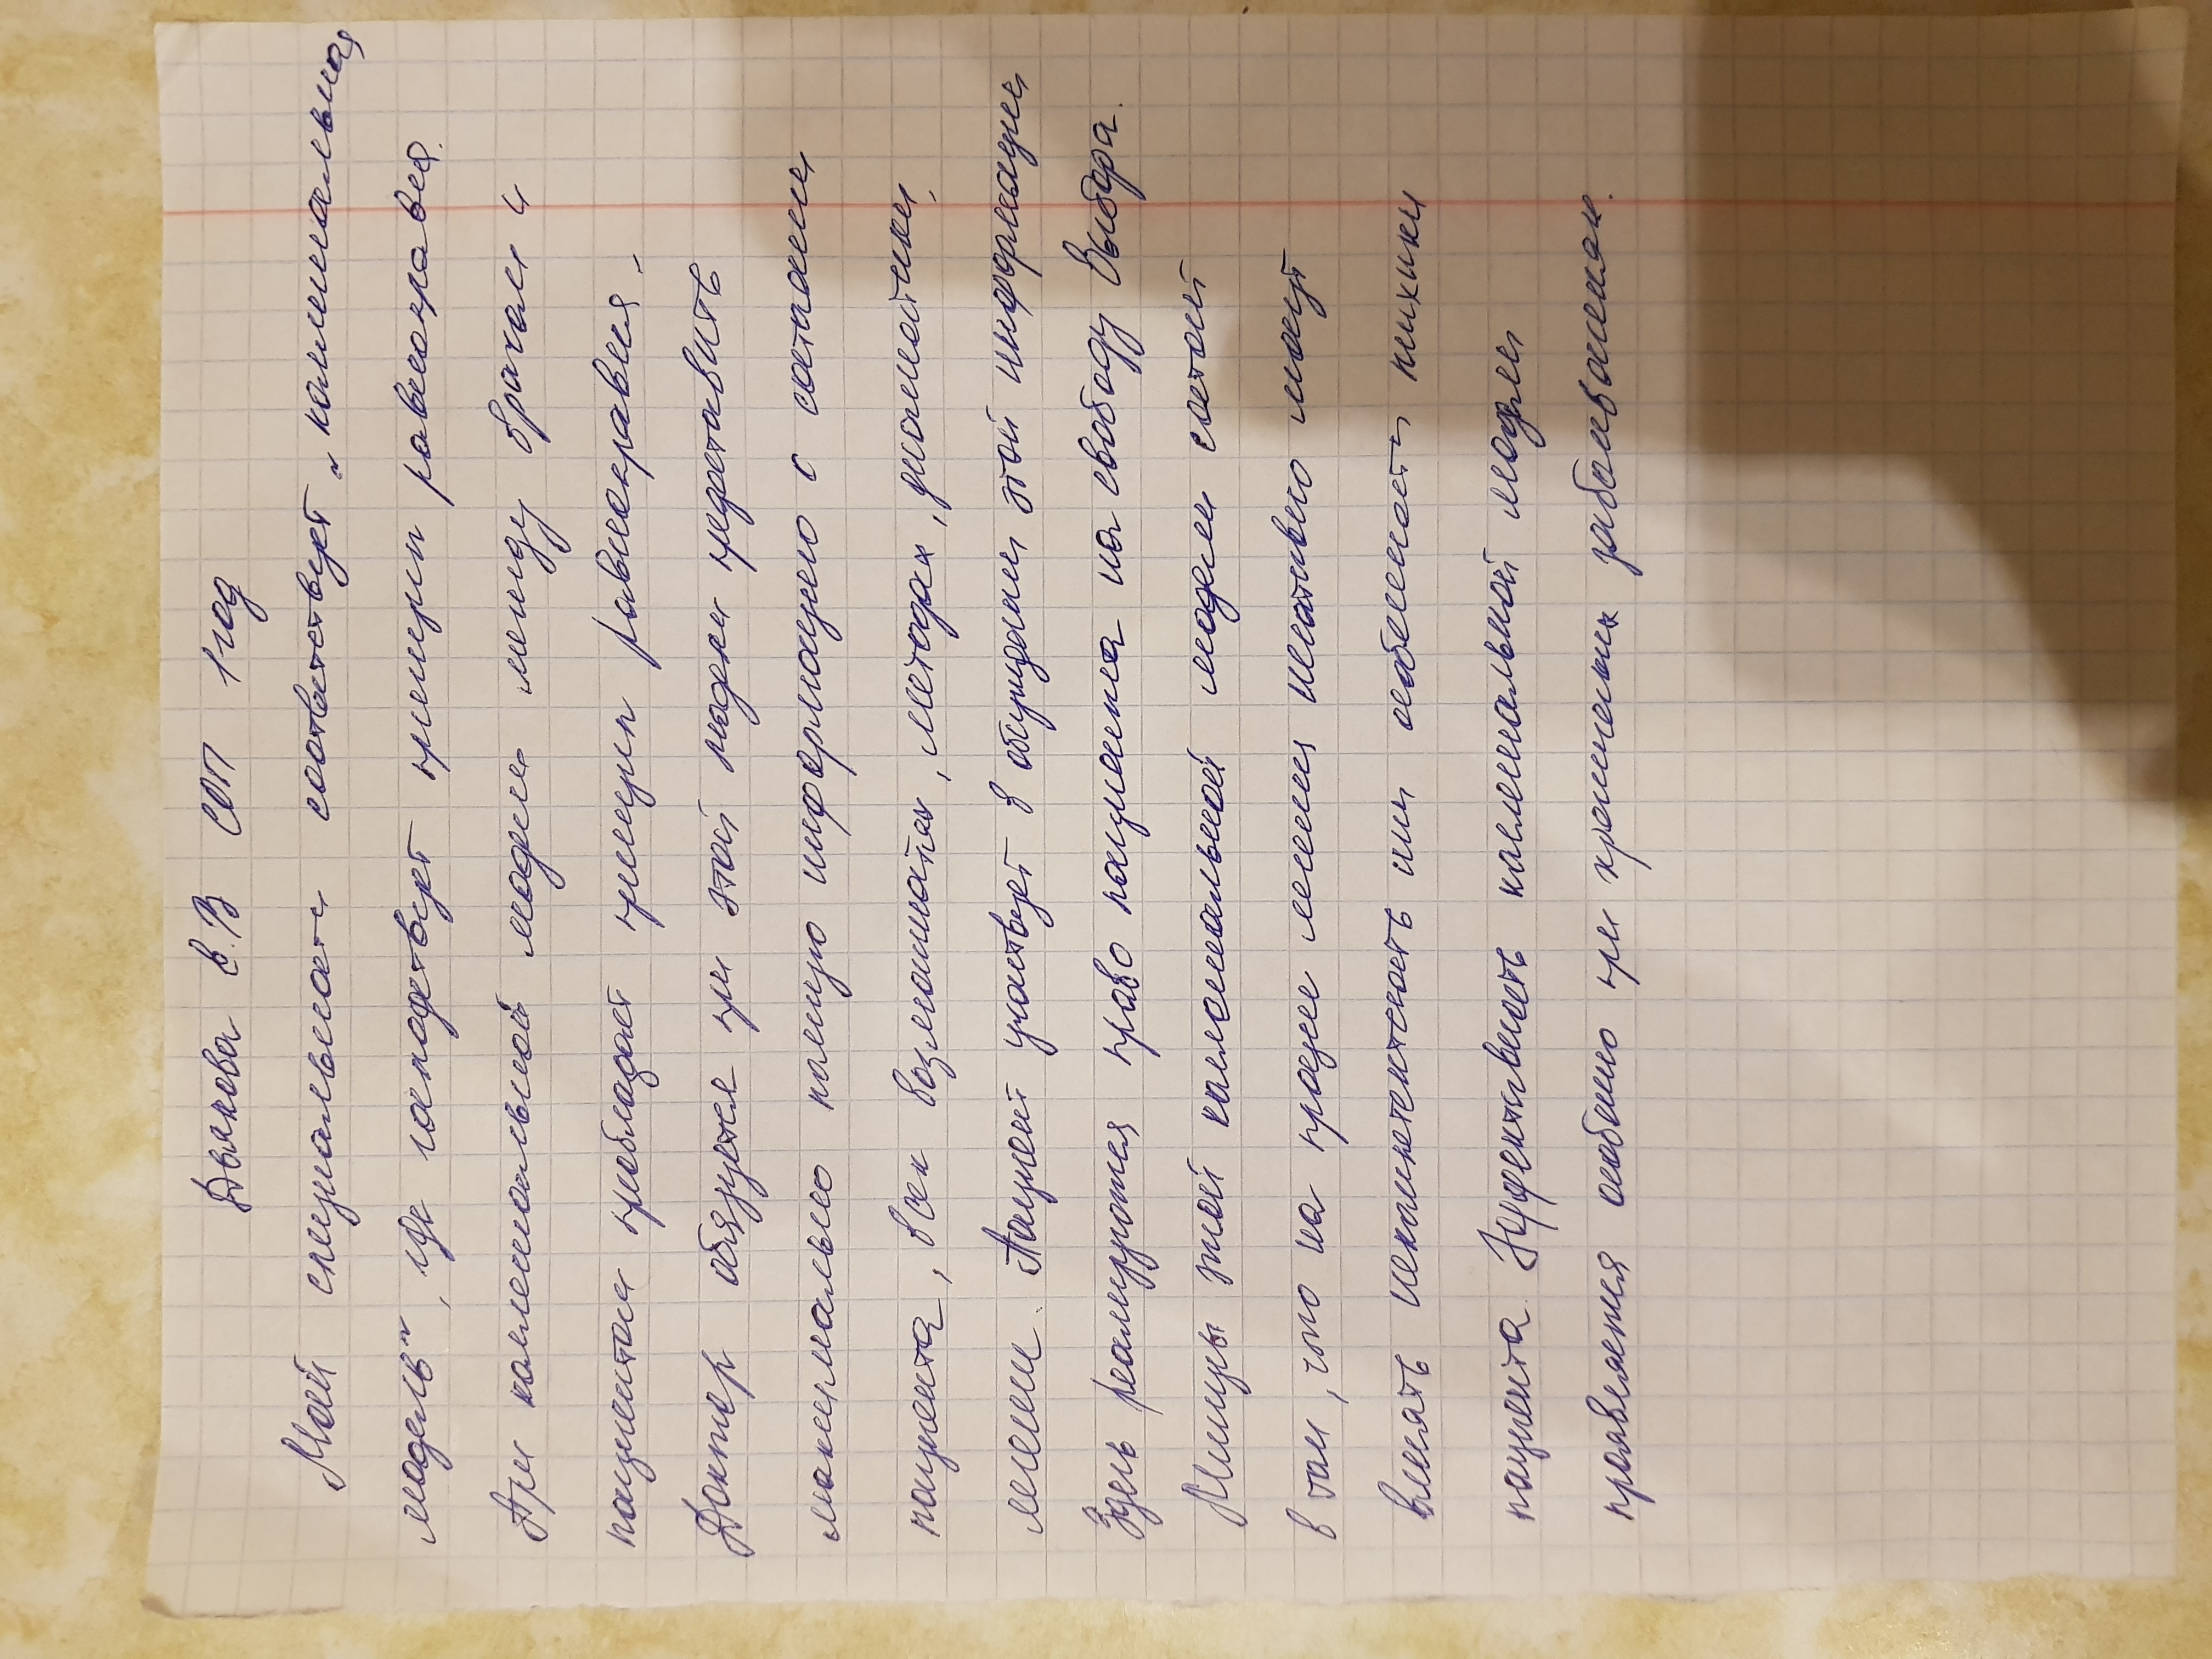 Дьякова Е.В СОП 1 год
Моей специальности соответствует „коллегиальная
модель", где господствует принцип равноправия.
При коллегиальной модели между врачом и
пациентом преобладает принцип равноправия.
Доктор обязуется при этой модели предоставить
максимально полную информацию о состоянии
пациента, всех возможностях, методах, диагностики,
лечения. Пациент участвует в обсуждении этой информации
Здесь реализуются право пациента на свободу выбора.
Минусы этой коллегиальной модели состоит
в том, что на процесс лечения негативно могут
влиять некомпетентность или особенности психики
пациента. Эффективность коллегиальной модели
проявляется особенно при хронических заболеваниях.